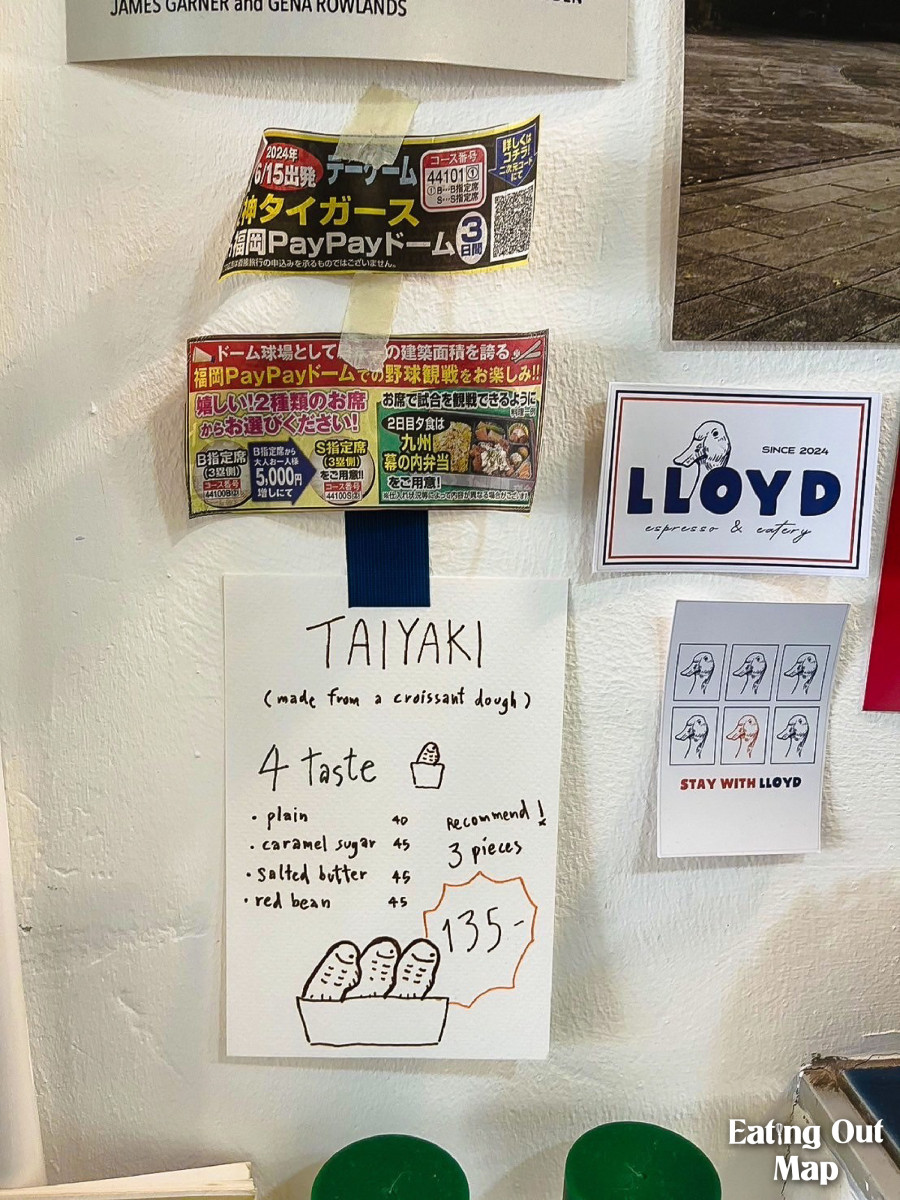 JAMES GARNER and GENA ROWLANDS
2024年
6/15出発
デーゲーム
コース番号
44101①
①B…B指定席
S…S指定席
詳しくは
コチラ!
二次元コード
にて
神タイガース
福岡PayPayドーム
3
日間
旅行の申込みを承るものではございません。
ドーム球場として
の建築面積を誇る
福岡PayPayドームでの野球観戦をお楽しみ!!
嬉しい!2種類のお席
からお選びください!
B指定席
(3塁側)
コース番号
44100B②
B指定席から
大人お一人様
5,000円
増しにて
S指定席
(3塁側)
をご用意!!
コース番号
44100S②
お席で試合を観戦できるように
2日目夕食は
九州
幕の内弁当
をご用意!
料理一例
※仕入れ状況等によって内容が異なる場合がございます。
SINCE 2024
LLOYD
espresso & eatery
STAY WITH LLOYD
TAIYAKI
(made from a croissant dough)
4 taste
• plain 40
• caramel sugar 45
• salted butter 45
• red bean 45
Recommend!
3 pieces
135-
Eating Out
Map